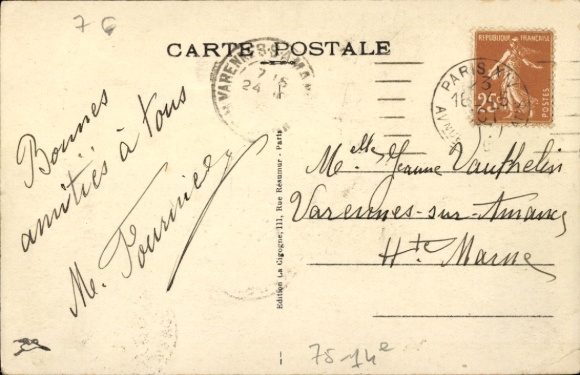 7 6
CARTE POSTALE
REPUBLIQUE FRANÇAISE
25c
POSTES
PARIS XIV
VARENNES-S-AMAN
7
24
Bonnes
amitiés à tous
M. Fournier
Melle Jeanne Vauthelin
Varennes-sur-Amance
Hte Marne
Edition La Cigogne, 111, Rue Réaumur - Paris
75-14e